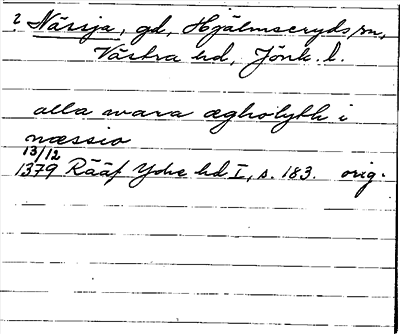 ? Nässja, gd, Hjälmseryds sn,
Västra hd, Jönk. l.
alla mara ægholyth i
næssio
13/12
1379 Rääf Ydre hd I, s. 183. orig.